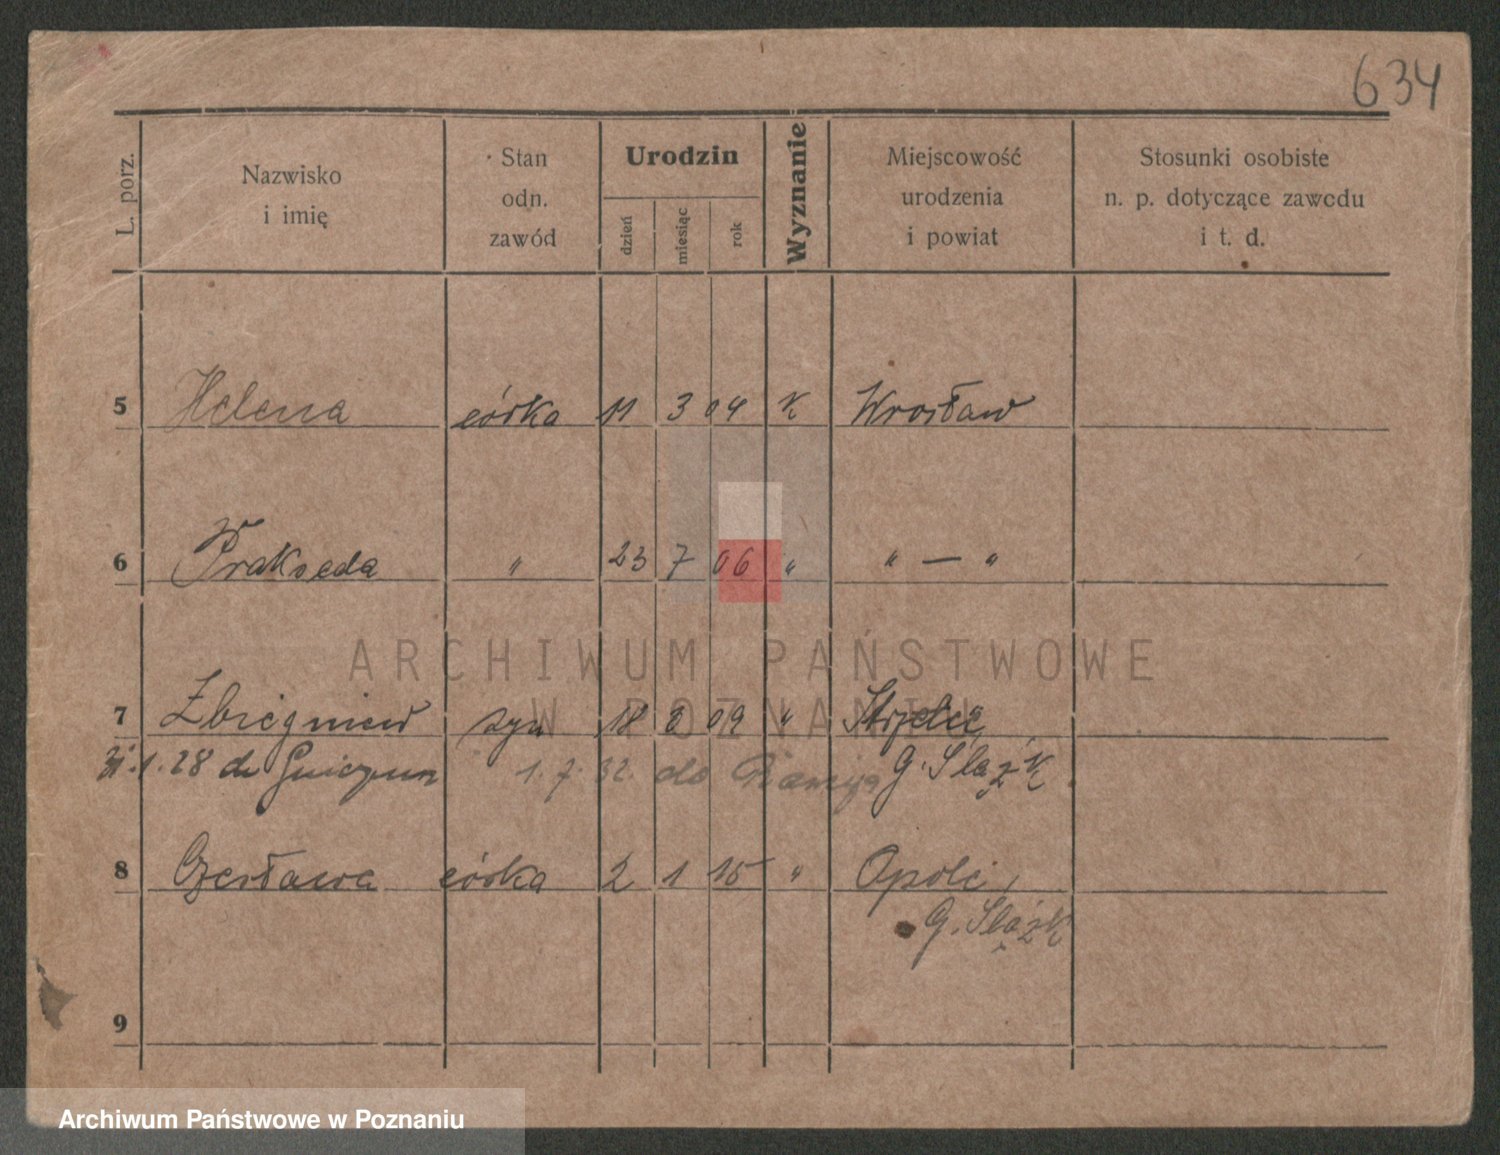 634
L. porz.
Nazwisko
i imię
Stan
odn.
zawód
Urodzin
dzień
miesiąc
rok
Wyznanie
Miejscowość
urodzenia
i powiat
Stosunki osobiste
n. p. dotyczące zawodu
i t. d.
5 Helena córka 11 3 04 K Wrosław
6 Prakseda " 23 7 06 " " — "
ARCHIWUM PAŃSTWOWE
W POZNANIU
7 Zbiegniew syn 18 8 09 " Strzelce
31.1.28 do 1.7.32. do G. Śląsk
8 Czesława córka 2 1 15 " Opole,
G. Śląsk
9
Archiwum Państwowe w Poznaniu